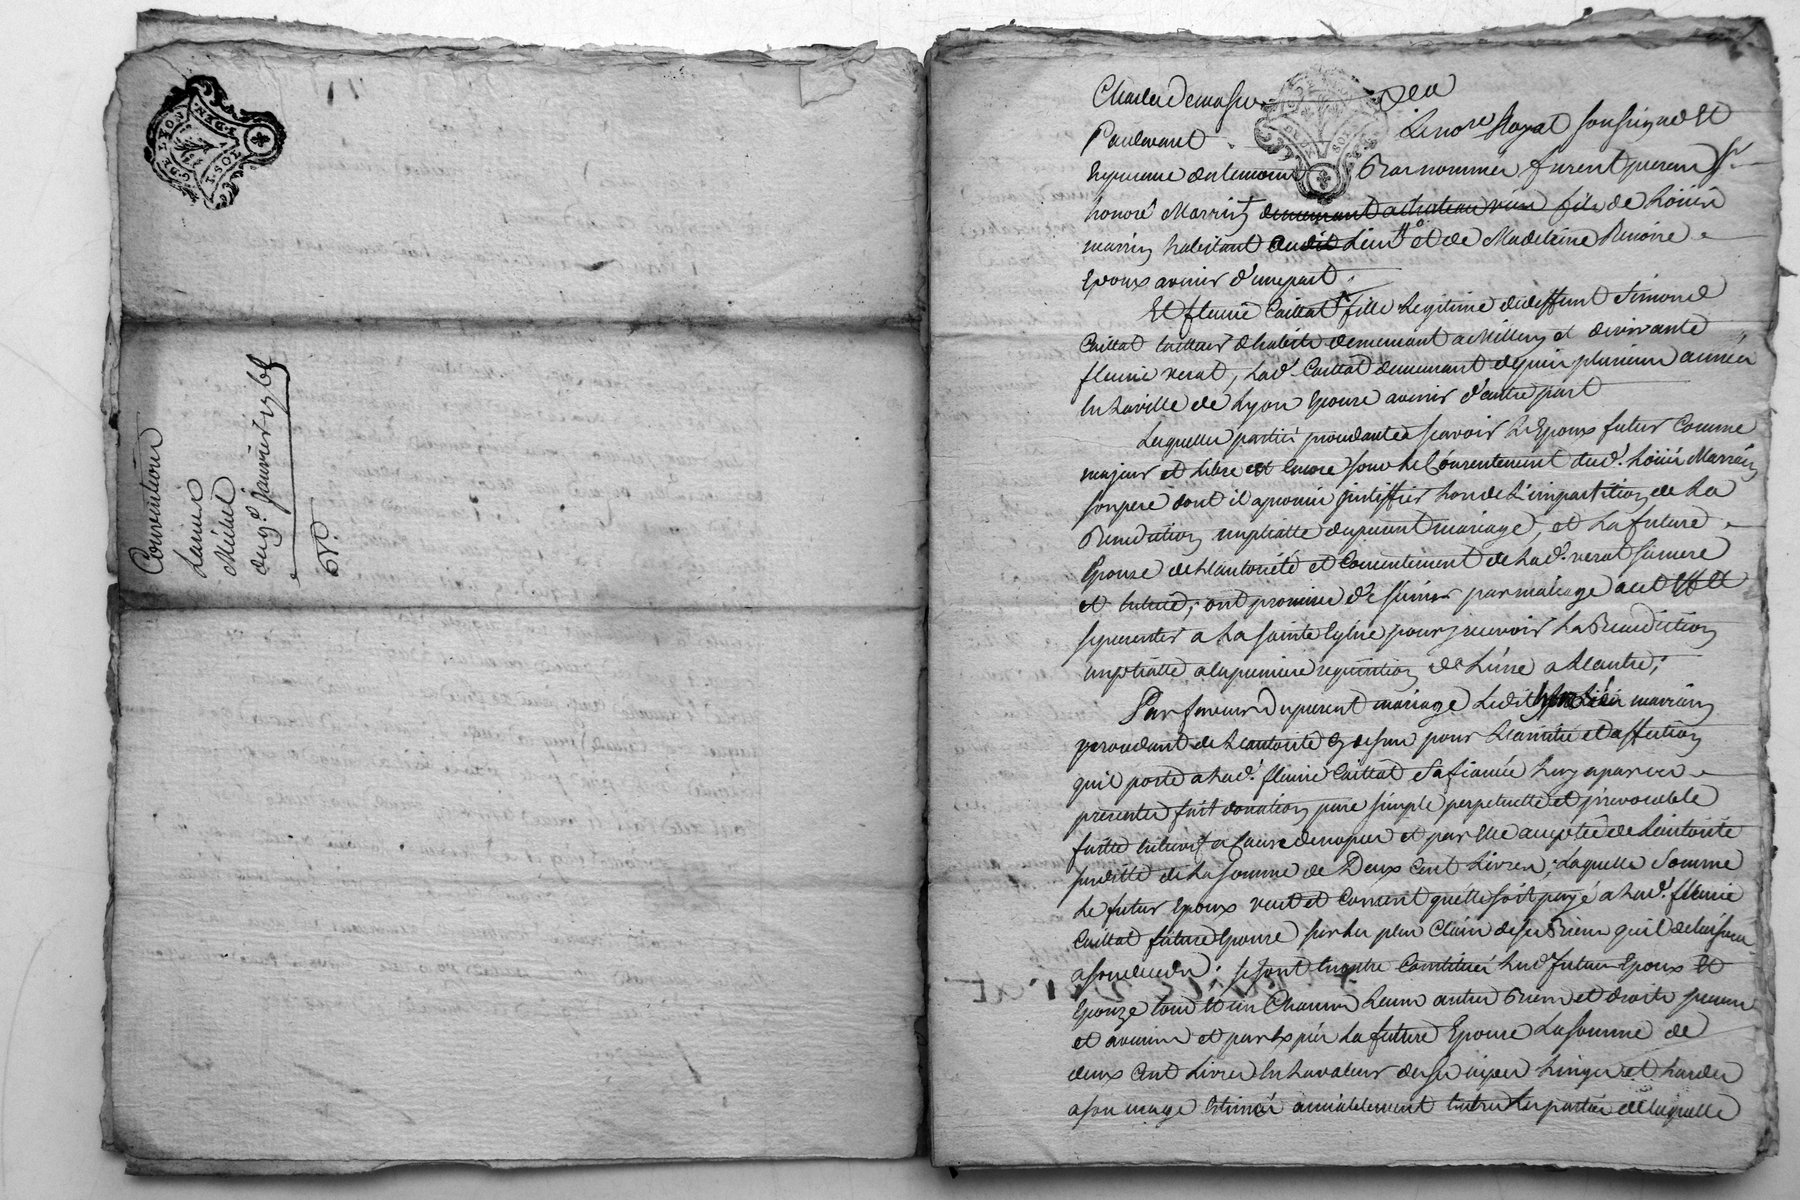 G. DE LYON
1. SOL
Conventions
Larieux
Michel
du 9e janvier
Charles Demasur
Pardevant Le nore Royal soussigné Et
En presence des temoins Bas nommés furent presents sr
honoré Marrin demeurant a chateau vieux fils de Loüis
marrin habitant audit Lieu et de Madeleine Benoire
Epoux avenir d'une part.
Et fleurie Caillat fille Legitime de deffunt Simond
Caillat tailleur d'habits demeurant a Millery et de vivante
fleurie verat, Lad. Caillat demeurant depuis plusieurs années
En La ville de Lyon Epouse avenir d'autre part
Lesquelles parties procedantes scavoir Le Epoux futur Comme
majeur et Libre et Encore sous Le Consentement dud. Loüis Marrin
son pere dont il a promis justiffier Lors de L'impartition de La
Benediction nuptialle du present mariage, et La future
Epouse de L'autorité et Consentement de Lad. verat sa mere
et tutrice, ont promis de s'unir par mariage
se presenter a La sainte Eglise pour y recevoir La Benediction
nuptialle a La premiere requisition de L'une a L'autre;
En faveur du present mariage Ledit marrin
procedant de L'autorité Cy dessus pour L'amitié et affection
qu'il porte a Lad. fleurie Caillat sa fiancée Luy a par ces
presentes fait donation pure simple perpetuelle et jrrevocable
faitte entrevifs a Cause de nopces et par Elle acceptée de L'autorité
susditte de La somme de Deux Cent Livres; Laquelle somme
Le futur Epoux veut et Consent qu'elle soit payé a Lad. fleurie
Caillat future Epouse sur Les plus Clairs de ses Biens qu'il delaissera
a son decedz; se sont En outre Constitués Lesd. futurs Epoux Et
Epouze tous Et un Chacun Leurs autres Biens et droits presens
et avenir et par Exprès La future Epouse La somme de
deux Cent Livres En La valeur de ses nipes Linges et hardes
a son usage Estimés amiablement Entre Les parties de Laquelle